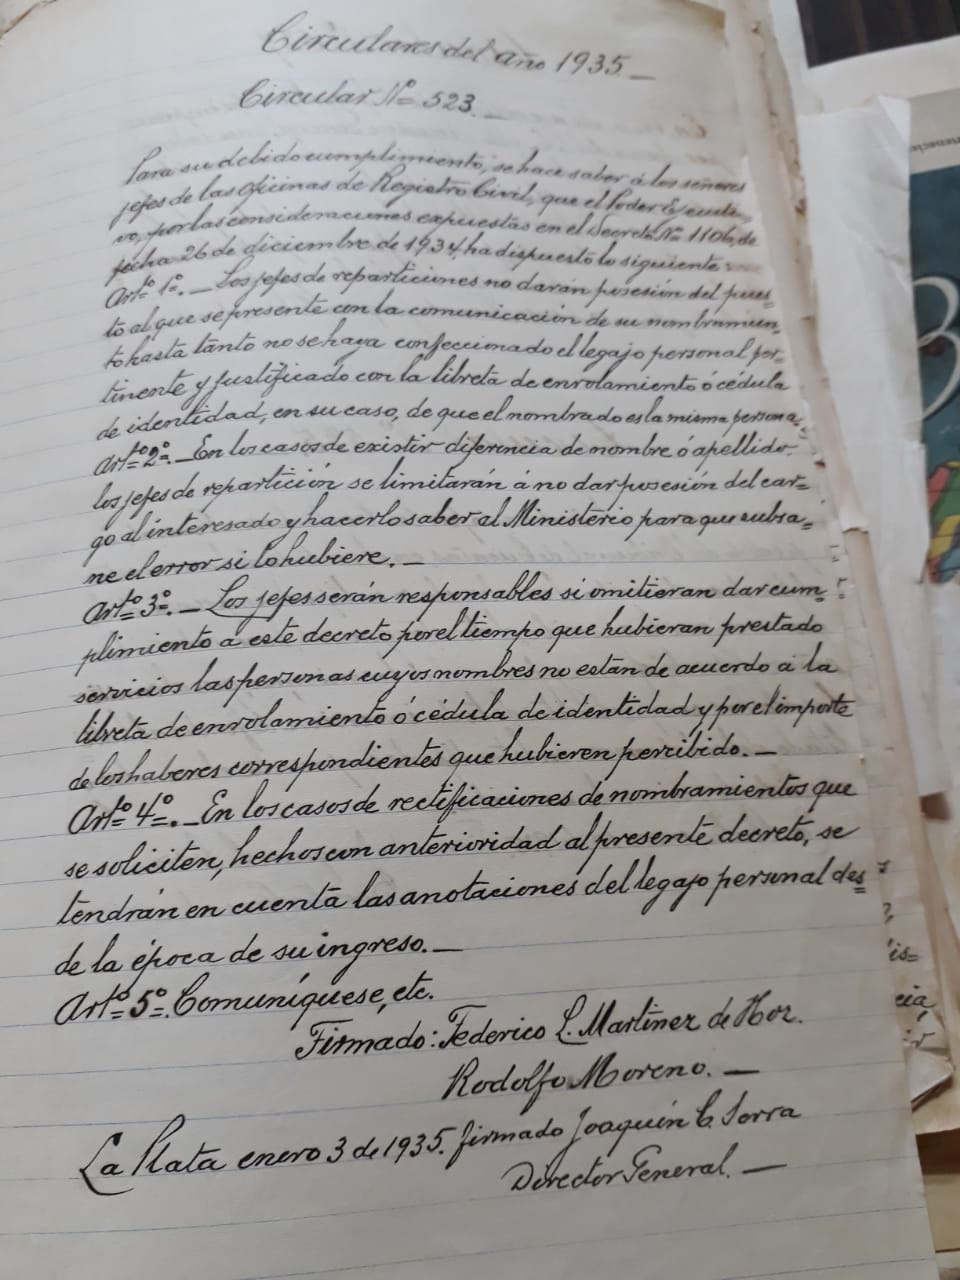 Circulares del año 1935._
Circular Nº 523._
Para su debido cumplimiento, se hace saber á los señores
jefes de las Oficinas de Registro Civil, que el Poder Ejecuti=
vo, por las consideraciones expuestas en el Decreto Nº 1106, de
fecha 26 de diciembre de 1934, ha dispuesto lo siguiente:
Artº 1º._ Los jefes de reparticiones no darán posesión del pues=
to al que se presente con la comunicación de su nombramien=
to hasta tanto no se haya confeccionado el legajo personal per=
tinente y justificado con la libreta de enrolamiento ó cédula
de identidad, en su caso, de que el nombrado es la misma persona.
Artº 2º._ En los casos de existir diferencia de nombre ó apellido
los jefes de repartición se limitarán á no dar posesión del car=
go al interesado y hacerlo saber al Ministerio para que subsa=
ne el error si lo hubiere._
Artº 3º._ Los jefes serán responsables si omitieran dar cum=
plimiento a este decreto por el tiempo que hubieran prestado
servicios las personas cuyos nombres no están de acuerdo á la
libreta de enrolamiento ó cédula de identidad y por el importe
de los haberes correspondientes que hubieren percibido._
Artº 4º._ En los casos de rectificaciones de nombramientos que
se soliciten, hechos con anterioridad al presente decreto, se
tendrán en cuenta las anotaciones del legajo personal des=
de la época de su ingreso._
Artº 5º. Comuníquese, etc.
Firmado: Federico L. Martinez de Hoz.
Rodolfo Moreno._
La Plata enero 3 de 1935. firmado Joaquín C. Sorra
Director General._